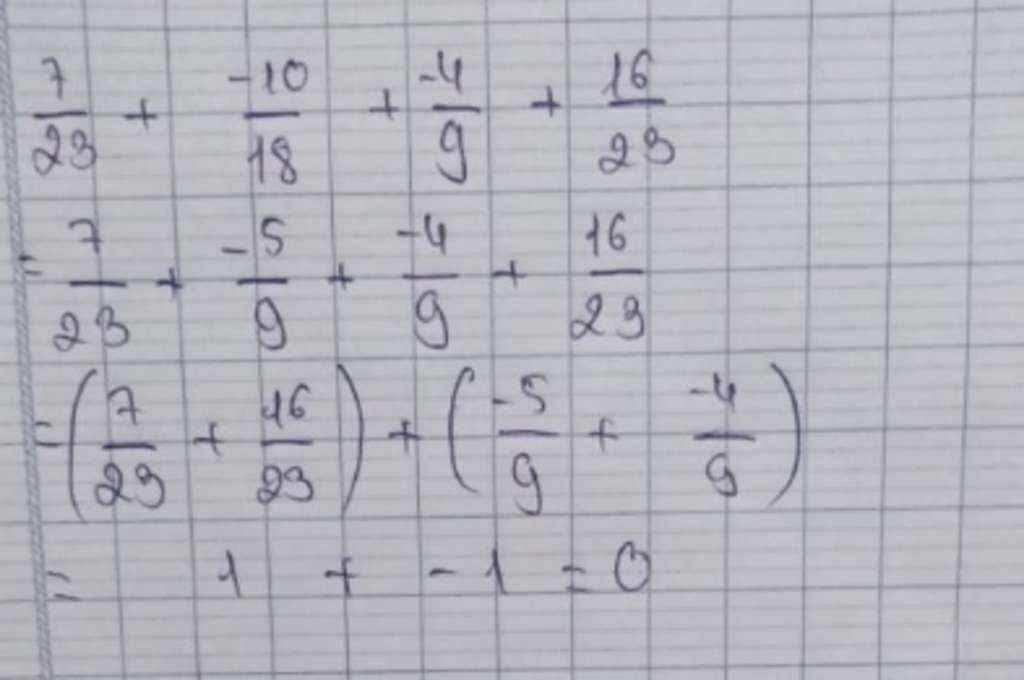 7/23 + -10/18 + -4/9 + 16/23
= 7/23 + -5/9 + -4/9 + 16/23
= (7/23 + 16/23) + (-5/9 + -4/9)
= 1 + -1 = 0